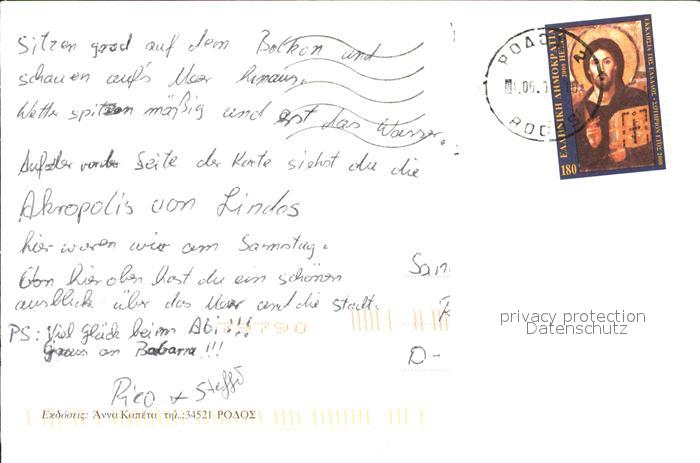 Sitzen grad auf dem Balkon und
schauen auf's Meer hinaus.
Wetter spitzen mäßig und erst das Wasser.
Auf der vorder Seite der Karte siehst du die
Akropolis von Lindos
hier waren wir am Samstag.
Von hier oben hast du ein schönen
ausblick über das Meer und die Stadt.
PS: Viel Glück beim Abi!!!
Gruss an Babarra!!!
Rico + Steffi
Εκδόσεις: Άννα Καπέτα τηλ.:34521 ΡΟΔΟΣ
79790
San
D-
ΡΟΔΟΣ
RODOS
ΕΛΛΗΝΙΚΗ ΔΗΜΟΚΡΑΤΙΑ
180
privacy protection
Datenschutz